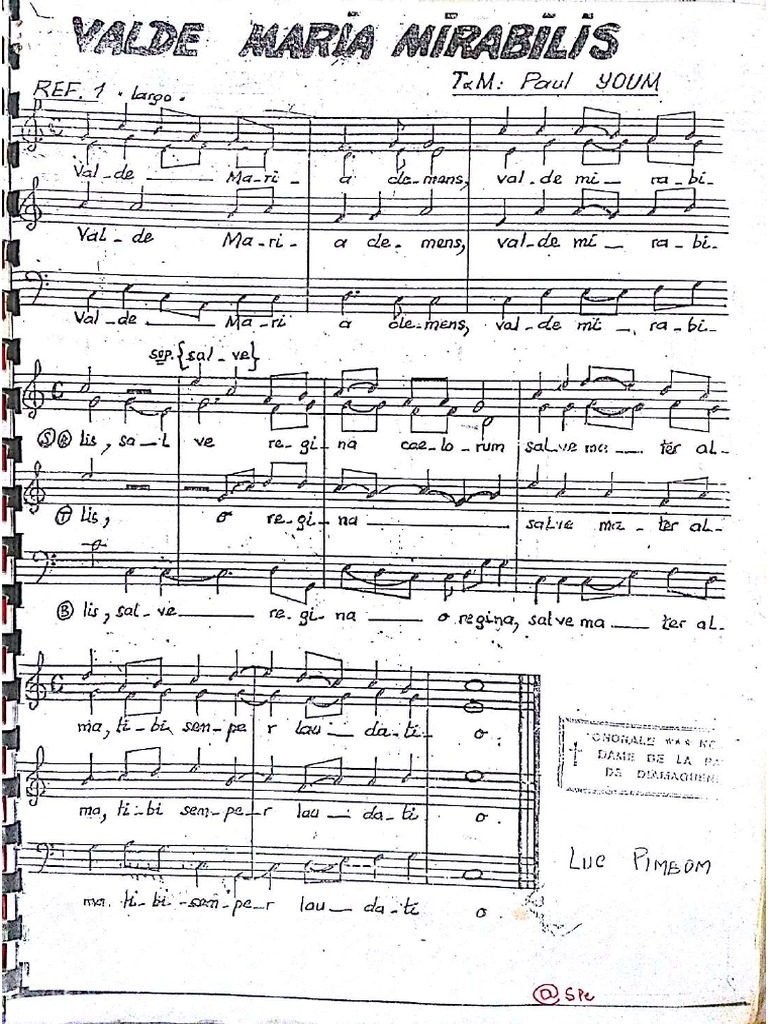 VALDE MARIA MIRABILIS
T&M: Paul YOUM
REF. 1 . Largo .
Val_de ___ Ma_ri _ a cle_mens, val_de mi __ ra_bi_
Val _ de Ma_ri _ a cle_mens, val_de mi __ ra_bi_
Val_de ___ Ma_ri a cle_mens, val_de mi _ ra_bi_
sop. {sal_ve}
S A lis, sa__l ve re_gi_na cae_lo_rum salve ma __ ter al_
T lis, o re_gi_na ________ salve ma_ter al_
B lis, sal_ve ____ re_gi_na ____ o regina, salve ma ___ ter al_
ma, ti_bi sem_pe r lau _ da_ti_ o .
ma, ti_bi sem_pe_r lau __ da_ti o .
ma. ti_bi_sem_pe_r lau __ da_ti o
CHORALE
DAME DE LA
DE
LUC PIMBOM
@ Spe